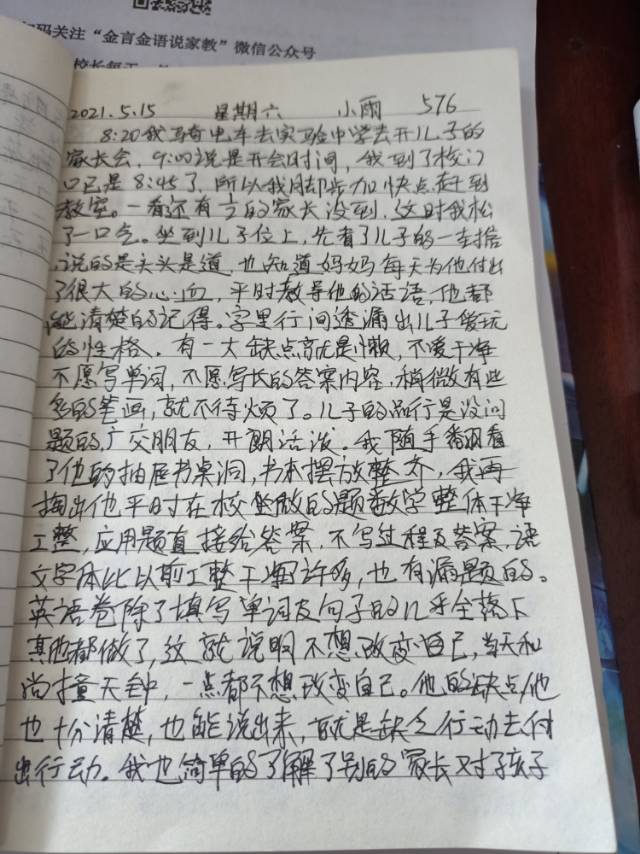 扫码关注“金言金语说家教”微信公众号
2021.5.15 星期六 小雨 576
8:20我骑电车去实验中学去开儿子的
家长会，9:00说是开会时间，我到了校门
口已是8:45了，所以我脚步加快点赶到
教室。一看还有的家长没到，这时我松
了一口气。坐到儿子位上，先看了儿子的一封信
说的是头头是道，也知道妈妈每天为他付出
了很大的心血，平时教导他的话语，他都
能清楚的记得。字里行间透漏出儿子爱玩
的性格，有一大缺点就是懒，不爱干净
不愿写单词，不愿写长的答案内容，稍微有些
多的笔画，就不待烦了。儿子的品行是没问
题的，广交朋友，开朗活泼。我随手翻看
了他的抽屉书桌洞，书本摆放整齐，我再
掏出他平时在校坐做的题数学整体干净
工整，应用题直接给答案，不写过程及答案，语
文字体比以前工整干净许多，也有漏题的。
英语卷除了填写单词及句子的几乎全落下
其他都做了，这就说明不想改变自己，当天和
尚撞天钟，一点都不想改变自己。他的缺点他
也十分清楚，也能说出来，就是缺乏行动去付
出行动。我也简单的了解了别的家长对于孩子